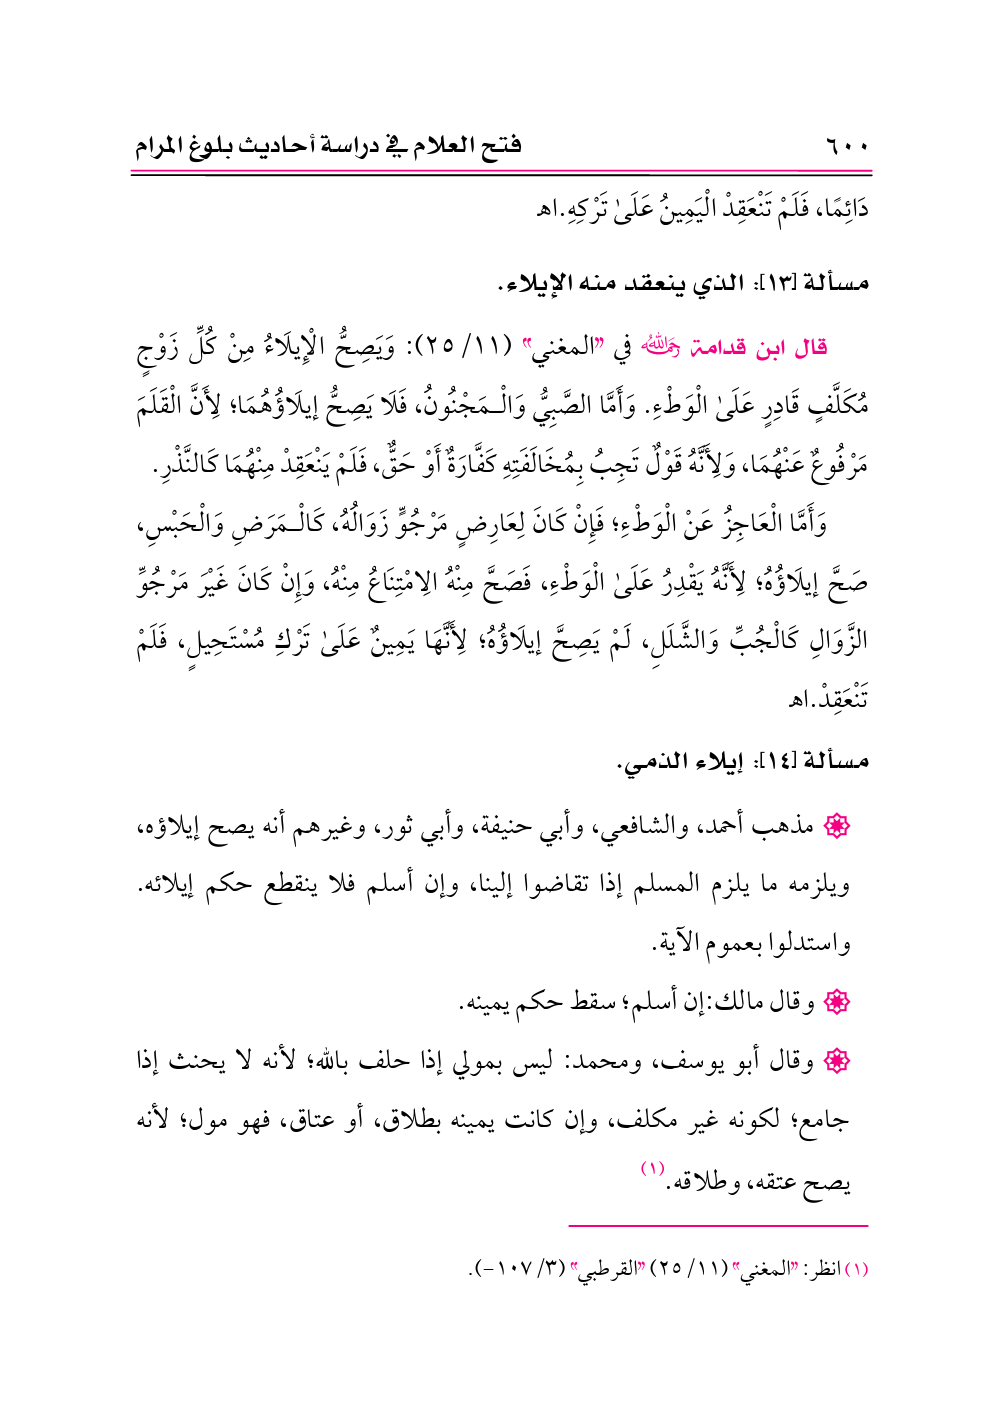 ٦٠٠ فتح العلام في دراسة أحاديث بلوغ المرام
دَائِمًا، فَلَمْ تَنْعَقِدْ الْيَمِينُ عَلَىٰ تَرْكِهِ.اهـ
مسألة [١٣]: الذي ينعقد منه الإيلاء.
قال ابن قدامة رحمه الله في "المغني" (١١/ ٢٥): وَيَصِحُّ الْإِيلَاءُ مِنْ كُلِّ زَوْجٍ
مُكَلَّفٍ قَادِرٍ عَلَىٰ الْوَطْءِ. وَأَمَّا الصَّبِيُّ وَالْـمَجْنُونُ، فَلَا يَصِحُّ إيلَاؤُهُمَا؛ لِأَنَّ الْقَلَمَ
مَرْفُوعٌ عَنْهُمَا، وَلِأَنَّهُ قَوْلٌ تَجِبُ بِمُخَالَفَتِهِ كَفَّارَةٌ أَوْ حَقٌّ، فَلَمْ يَنْعَقِدْ مِنْهُمَا كَالنَّذْرِ.
وَأَمَّا الْعَاجِزُ عَنْ الْوَطْءِ؛ فَإِنْ كَانَ لِعَارِضٍ مَرْجُوٍّ زَوَالُهُ، كَالْـمَرَضِ وَالْحَبْسِ،
صَحَّ إيلَاؤُهُ؛ لِأَنَّهُ يَقْدِرُ عَلَىٰ الْوَطْءِ، فَصَحَّ مِنْهُ الِامْتِنَاعُ مِنْهُ، وَإِنْ كَانَ غَيْرَ مَرْجُوِّ
الزَّوَالِ كَالْجُبِّ وَالشَّلَلِ، لَمْ يَصِحَّ إيلَاؤُهُ؛ لِأَنَّهَا يَمِينٌ عَلَىٰ تَرْكِ مُسْتَحِيلٍ، فَلَمْ
تَنْعَقِدْ.اهـ
مسألة [١٤]: إيلاء الذمي.
مذهب أحمد، والشافعي، وأبي حنيفة، وأبي ثور، وغيرهم أنه يصح إيلاؤه،
ويلزمه ما يلزم المسلم إذا تقاضوا إلينا، وإن أسلم فلا ينقطع حكم إيلائه.
واستدلوا بعموم الآية.
وقال مالك:إن أسلم؛ سقط حكم يمينه.
وقال أبو يوسف، ومحمد: ليس بمولي إذا حلف بالله؛ لأنه لا يحنث إذا
جامع؛ لكونه غير مكلف، وإن كانت يمينه بطلاق، أو عتاق، فهو مول؛ لأنه
يصح عتقه، وطلاقه.(١)
(١) انظر: "المغني" (١١/ ٢٥) "القرطبي" (٣/ ١٠٧-).